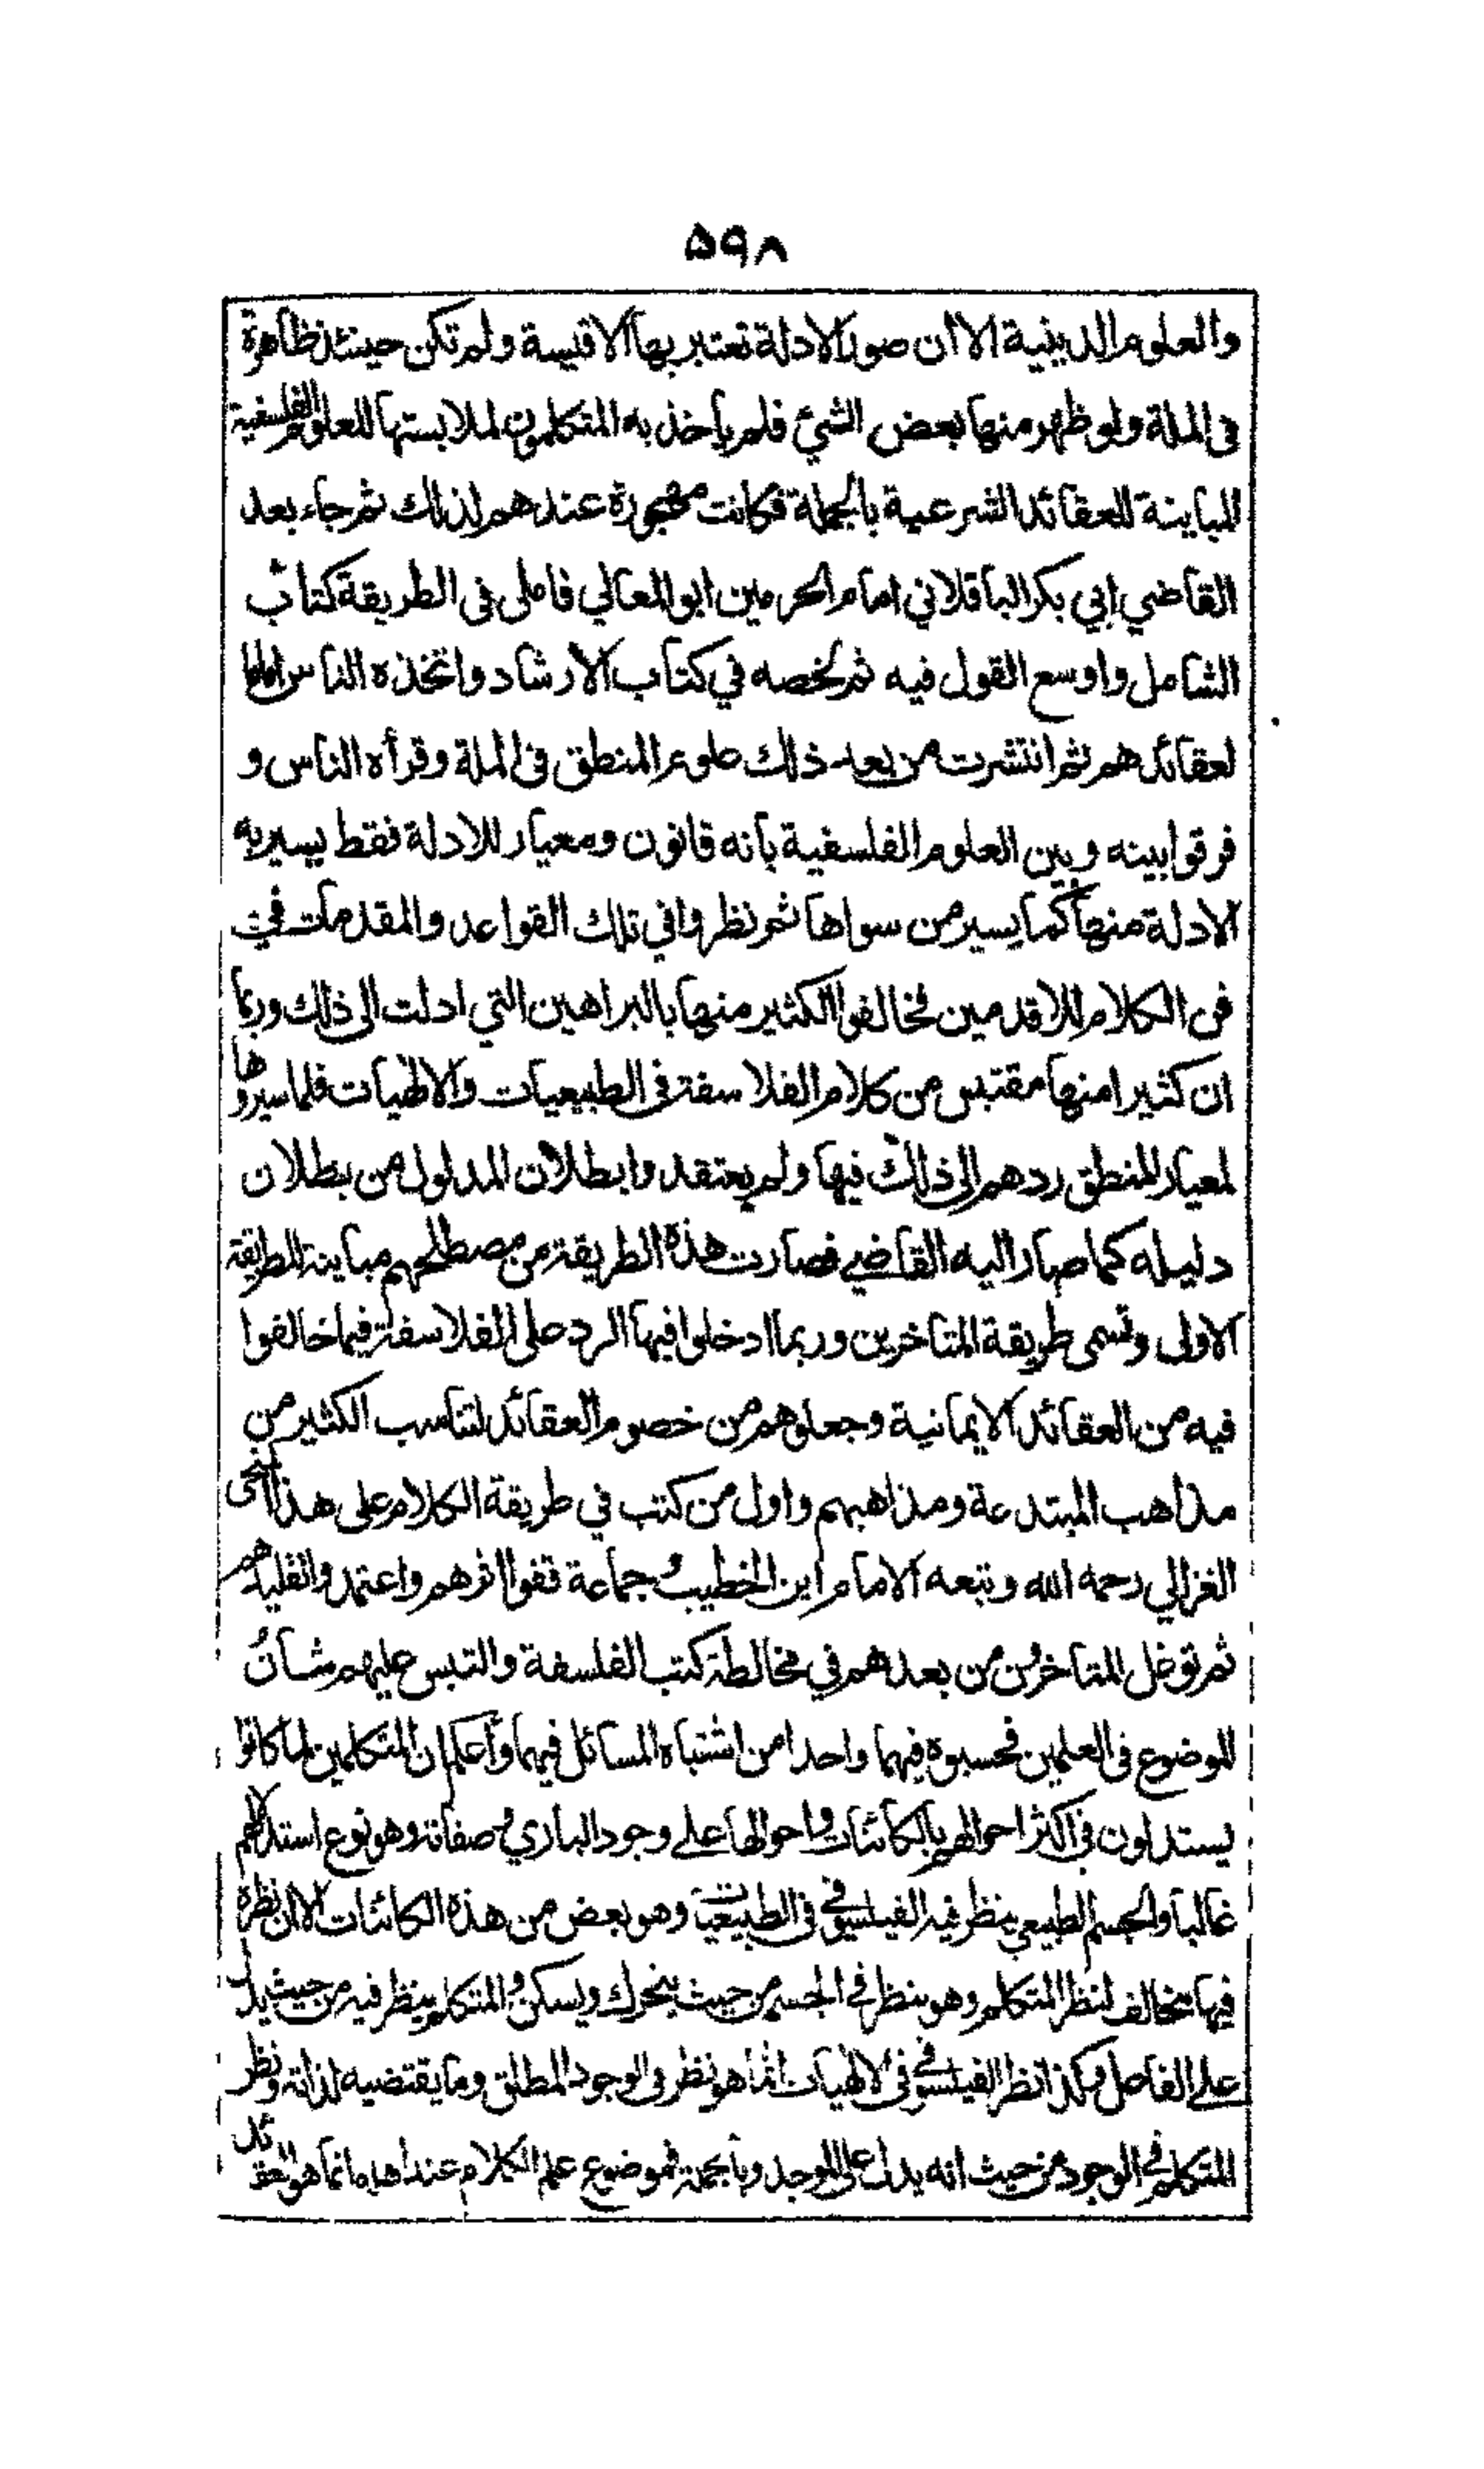 ۵۹۸
والعلوم الدينية الا ان صور الادلة تعتبر بها الاقيسة ولم تكن حينئذ ظاهرة
فى الملة ولو ظهر منها بعض الشئ فلم ياخذ به المتكلمون لملابستها للعلوم الفلسفية
المباينة للعقائد الشرعية بالجملة فكانت مهجورة عندهم لذلك ثم جاء بعد
القاضي ابي بكر الباقلاني امام الحرمين ابو المعالي فاملى فى الطريقة كتاب
الشامل واوسع القول فيه ثم لخصه في كتاب الارشاد واتخذه الناس اماما
لعقائدهم ثم انتشرت من بعد ذلك علوم المنطق فى الملة وقرأه الناس و
فرقوا بينه وبين العلوم الفلسفية بانه قانون ومعيار للادلة فقط يسير به
الادلة منها كما يسير من سواها ثم نظروا في تلك القواعد والمقدمات في
فن الكلام للاقدمين فخالفوا الكثير منها بالبراهين التي ادلت الى ذلك وربما
ان كثيرا منها مقتبس من كلام الفلاسفة فى الطبيعيات والالهيات فلما سيروها
لمعيار المنطق ردهم الى ذلك فيها ولم يعتقدوا بطلان المدلول من بطلان
دليله كما صار اليه القاضي فصارت هذه الطريقة من مصطلحهم مباينة للطريقة
الاولى وتسمى طريقة المتاخرين وربما ادخلوا فيها الرد على الفلاسفة فيما خالفوا
فيه من العقائد الايمانية وجعلوهم من خصوم العقائد لتناسب الكثير من
مذاهب المبتدعة ومذاهبهم واول من كتب في طريقة الكلام على هذا المنحى
الغزالي رحمه الله وتبعه الامام ابن الخطيب وجماعة قفوا اثرهم واعتمدوا تقليدهم
ثم توغل المتاخرون من بعدهم في مخالطة كتب الفلسفة والتبس عليهم شان
الموضوع فى العلمين فحسبوه فيهما واحدا من اشتباه المسائل فيهما واعلم ان المتكلمين لما كانوا
يستدلون فى اكثر احوالهم بالكائنات واحوالها على وجود الباري وصفاته وهو نوع استدلالهم
غالبا والجسم الطبيعي ينظر فيه الفيلسوف في الطبيعيات وهو بعض من هذه الكائنات الا ان نظره
فيها مخالف لنظر المتكلم وهو ينظر في الجسم من حيث يتحرك ويسكن والمتكلم ينظر فيه من حيث يدل
على الفاعل وكذا نظر الفيلسوف فى الالهيات انما هو نظر فى الوجود المطلق وما يقتضيه لذاته ونظر
المتكلم في الوجود من حيث انه يدل على الموجد وبالجملة فموضوع علم الكلام عند اهله انما هو العقائد